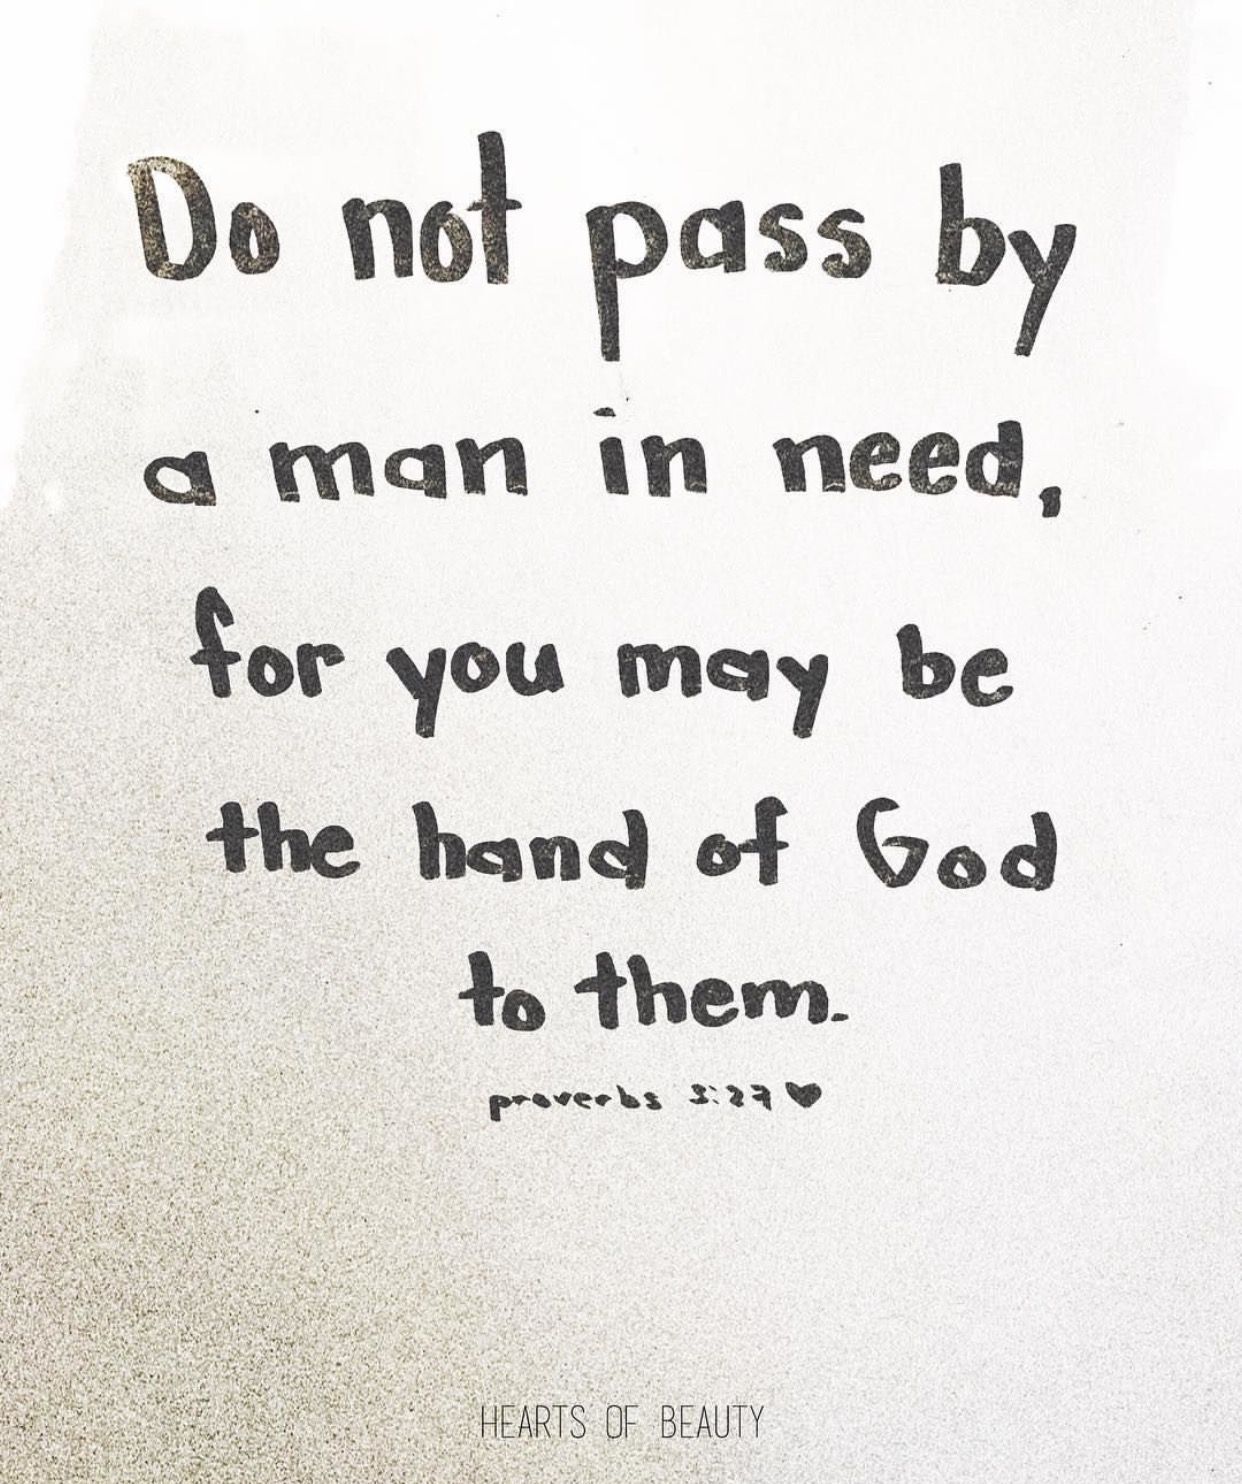 Do not pass by
a man in need,
for you may be
the hand of God
to them.
proverbs 3:27
HEARTS OF BEAUTY